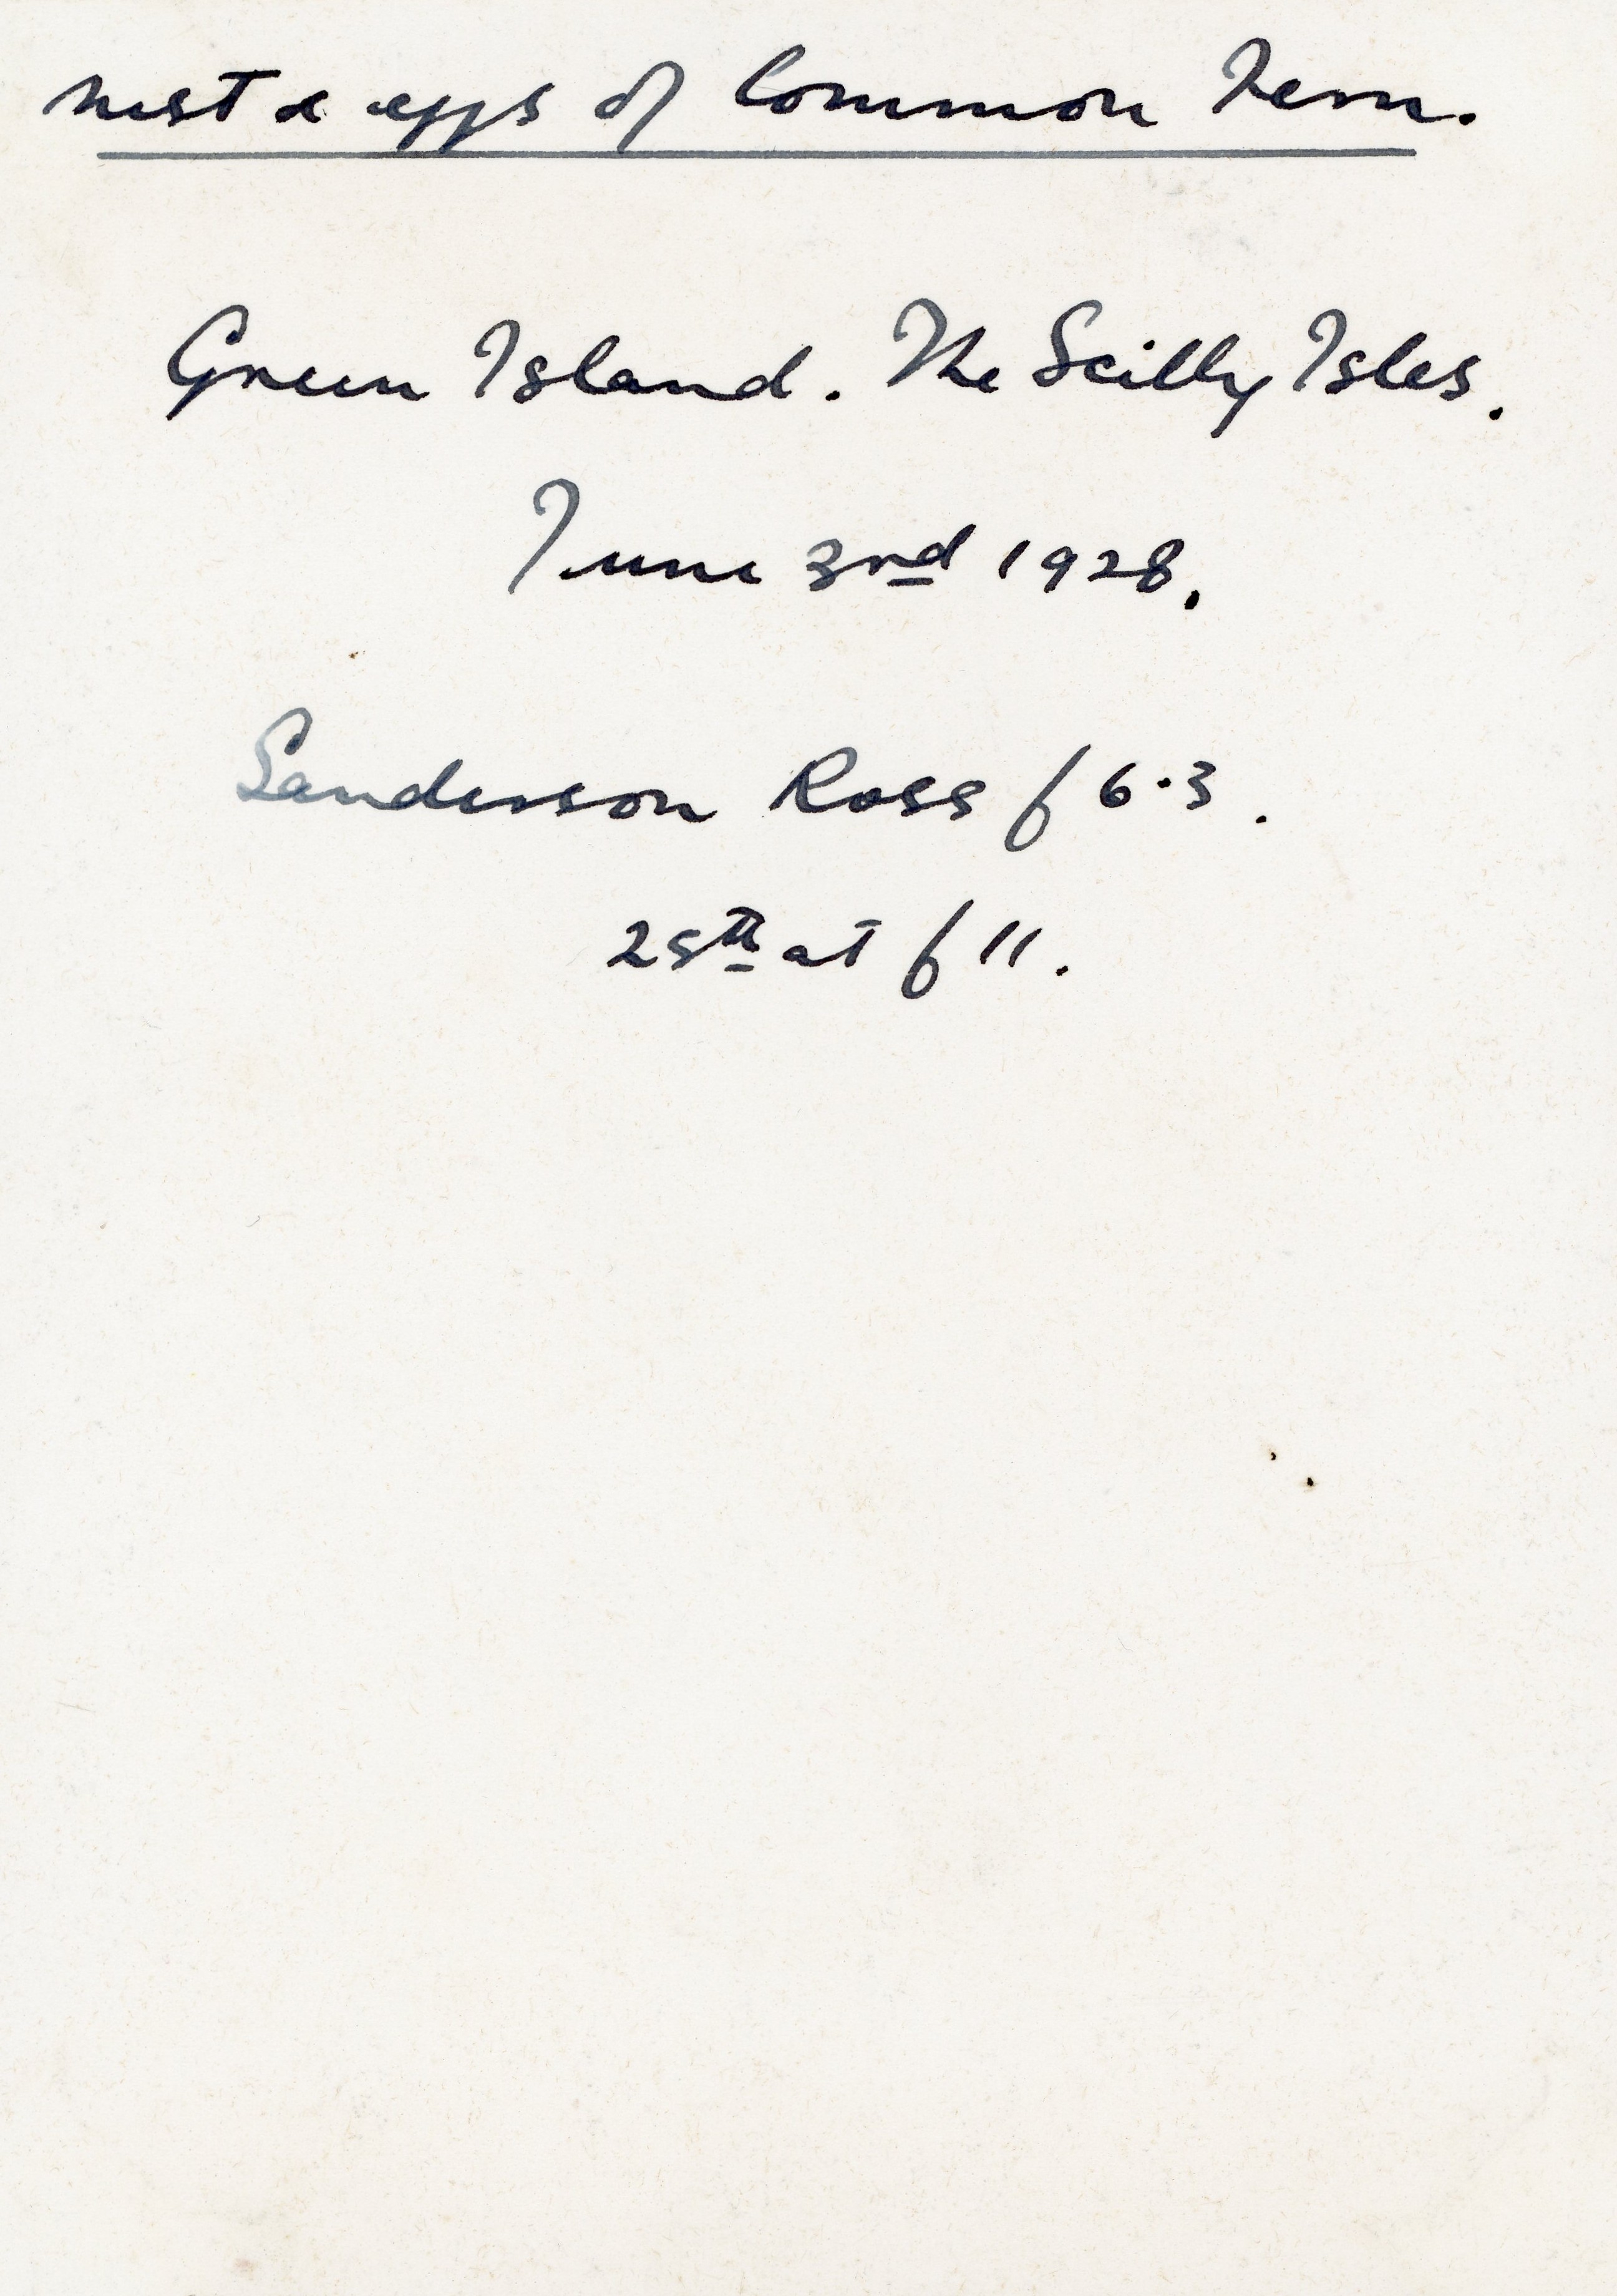 Nest & eggs of Common Tern.
Green Island. The Scilly Isles.
June 3rd 1928.
Sanderson Ross f 6.3.
25th at f 11.